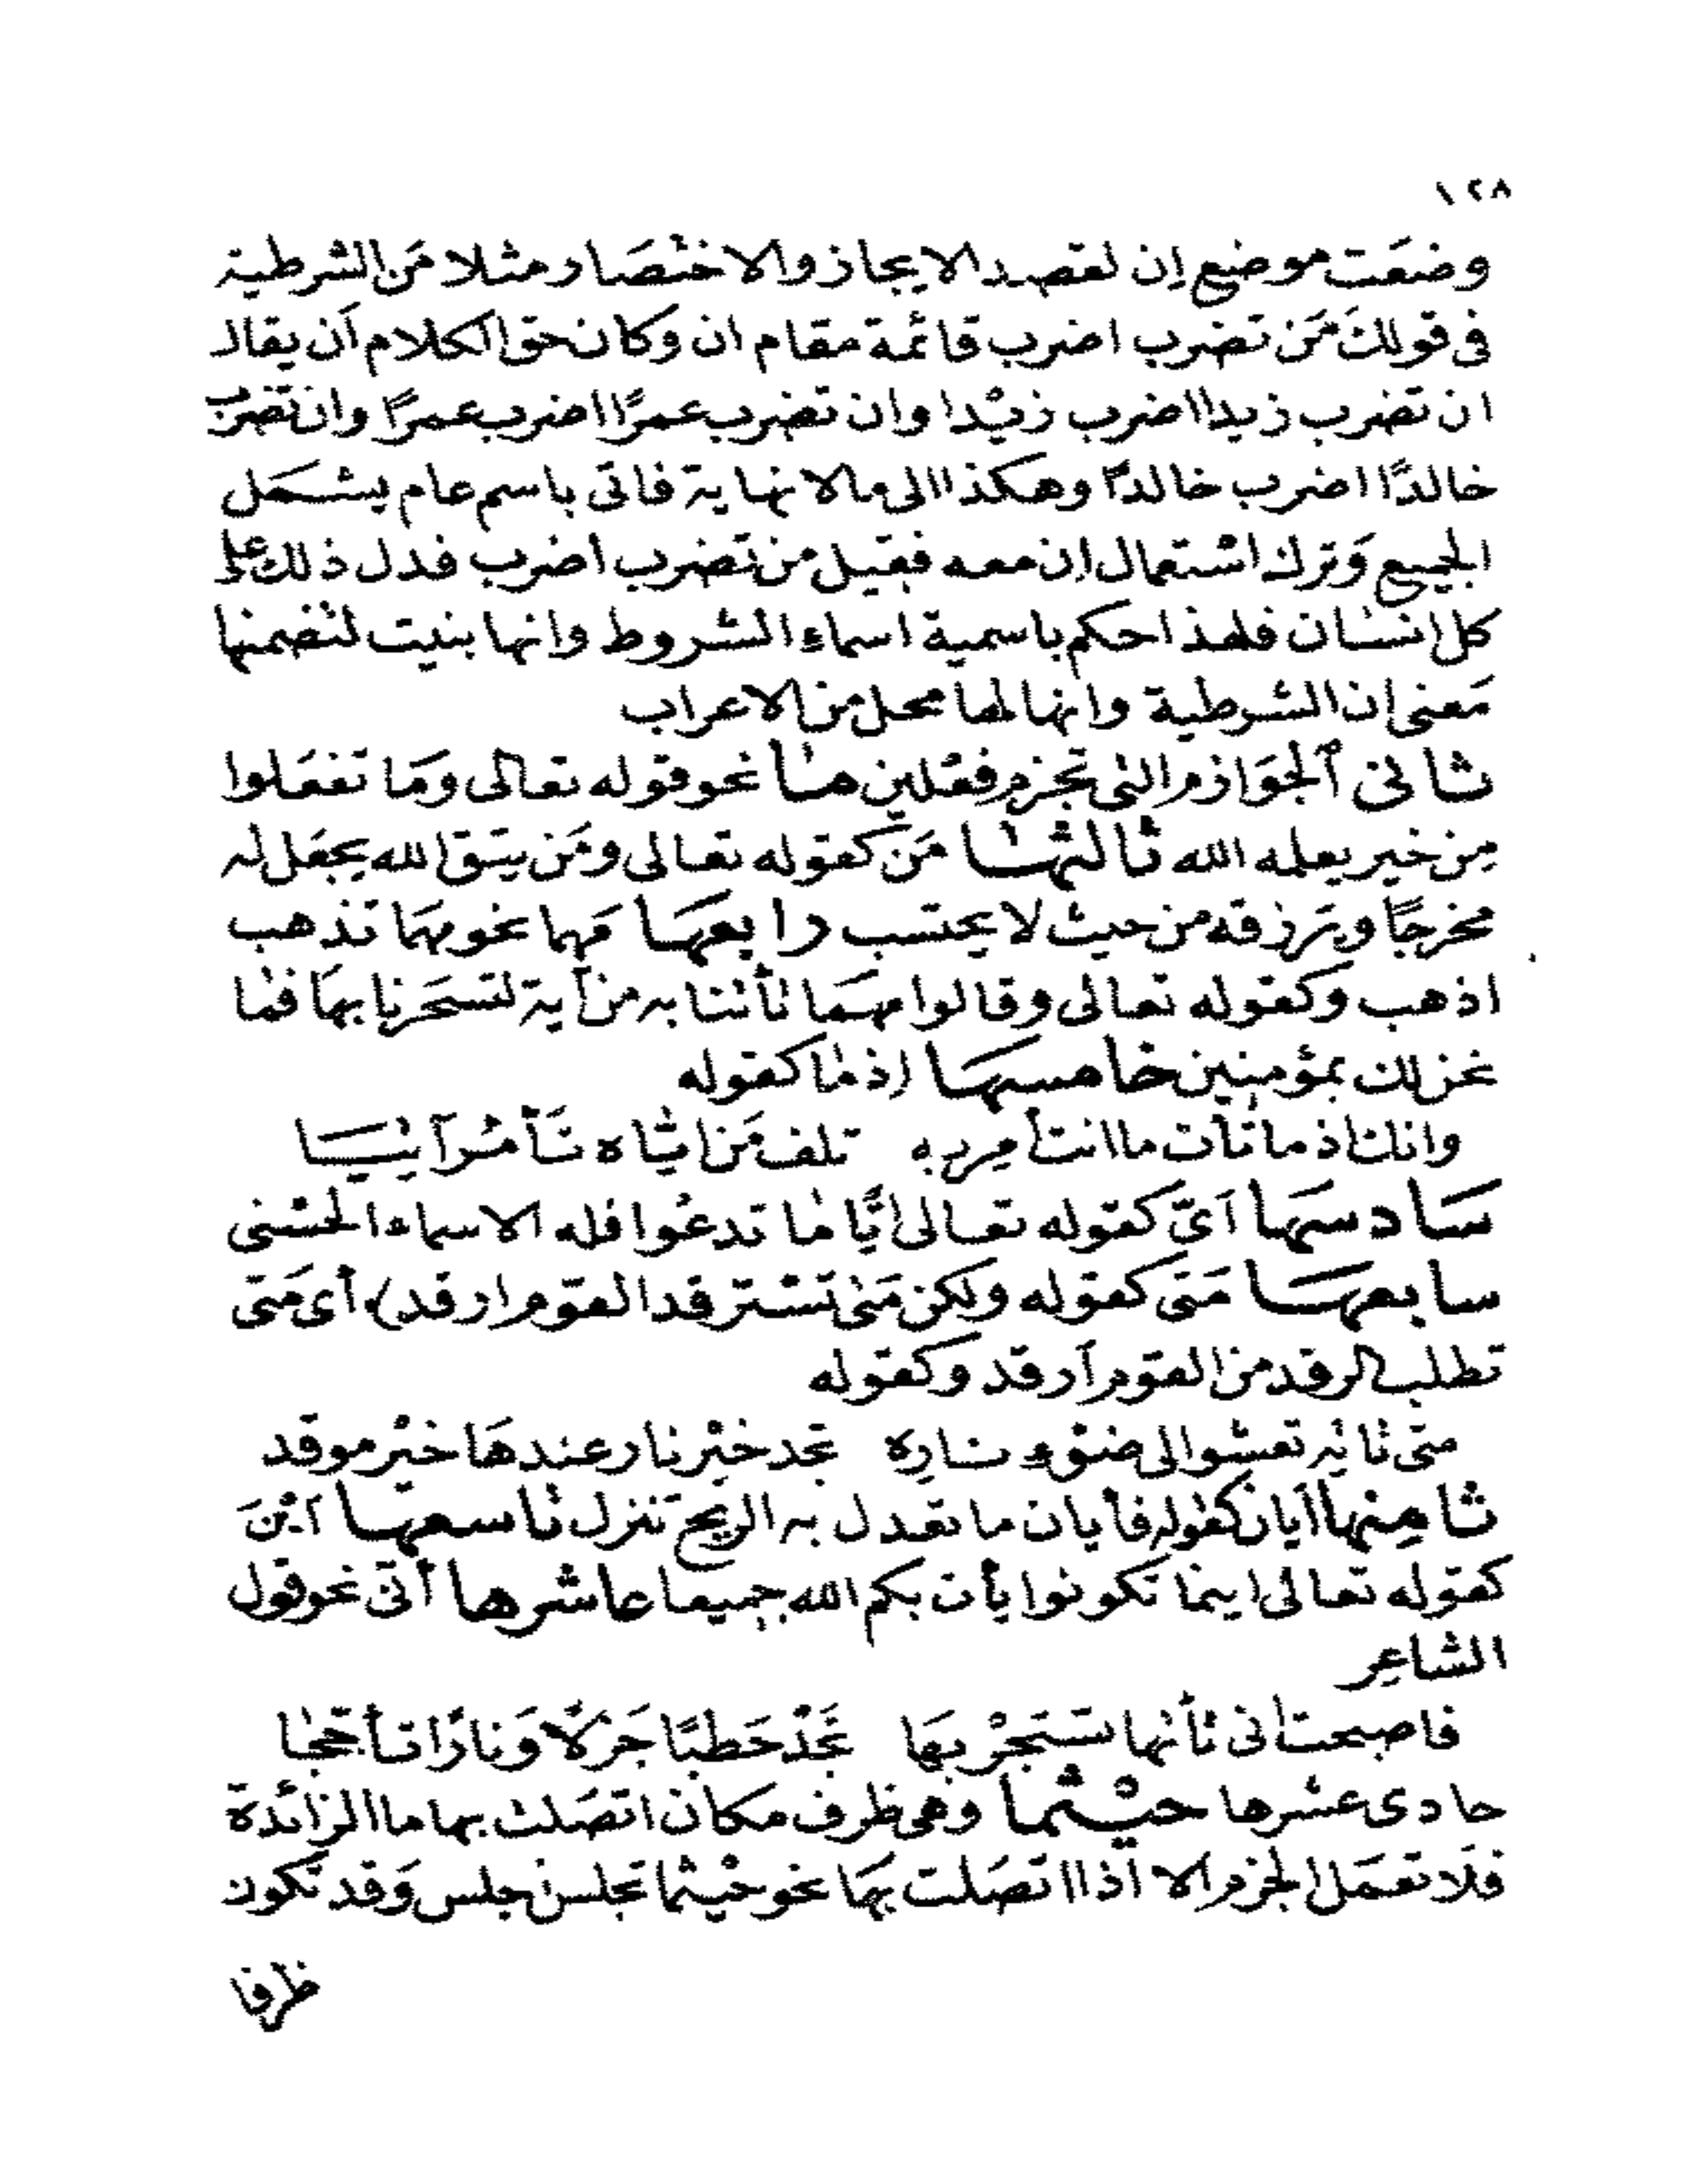 ١٢٨
وضعَت موضع إن لقصد الايجاز والاختصَار مثلا مَن الشرطية
فى قولكَ مَن تضرب اضرب قائمة مقام ان وكان حق الكلام أن يقال
ان تضرب زيدا اضرب زيْدا وان تضرب عمرًا اضرب عمرًا وان تضرب
خالدًا اضرب خالدًا وهكذا الى مالا نهاية فاتى باسم عام يشمَل
الجميع وَترك استعمال ان معه فقيل من تضرب اضرب فدل ذلك على
كل انسان فلهذا حكم باسمية اسماء الشروط وانها بنيت لتضمنها
مَعنى ان الشرطية وانها لها محل من الاعراب
ثانى الجوَازم التى تجزم فعْلين مَا نحو قوله تعالى وَمَا تفعَلوا
مِن خير يعلمه الله ثالثها مَن كقوله تعالى ومَن يتق الله يجعَل له
مخرجًا ويَرزقه من حيث لا يحتسب رابعهَا مَهما نحو مهمَا تذهب
اذهب وكقوله تعالى وقالوا مهمَا تأتنا به من آية لتسحَرنا بهَا فما
نحن لك بمؤمنين خامسهَا إذما كقوله
وانك اذ ما تأت ما انت آمِر به تلف مَن اياه تَأمُر آتيَا
سَادسهَا أىّ كقوله تعالى ايًّا ما تدعُوا فله الاسماء الحسْنى
سابعهَا مَتى كقوله ولكن مَتى تسْترفد القوم ارفد) أى مَتى
تطلب الرفد من القوم أرفد وكقوله
متى تاتِه تعشوا الى ضوْء نارِه تجد خيْر نار عندهَا خيْر موقد
ثامِنها أيان كقوله فأيان ما تعدل به الريح تنزل تاسعها أيْنَ
كقوله تعالى اينما تكونوا يأت بكم الله جميعا عاشرها أنى نحو قول
الشاعِر
فاصبحت انى تأتها تستَجْر بهَا تَجدْ حَطبًا جَزْلا وَنارًا تأججا
حادى عشرها حيْثما وهى ظرف مكان اتصَلت بها ما الزائدة
فلَا تعمَل الجزم الا اذا اتصَلت بهَا نحو حيْثما تجلس اجلس وَقد تكون
ظرفا